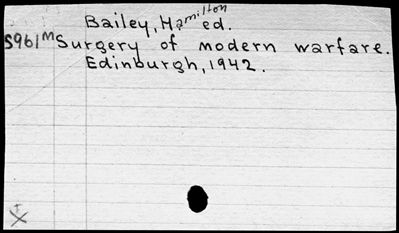 Bailey, Hamilton ed.
S961m Surgery of modern warfare.
Edinburgh, 1942.